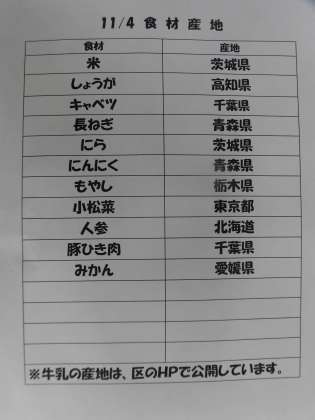 11/4 食材産地
食材 産地
米 茨城県
しょうが 高知県
キャベツ 千葉県
長ねぎ 青森県
にら 茨城県
にんにく 青森県
もやし 栃木県
小松菜 東京都
人参 北海道
豚ひき肉 千葉県
みかん 愛媛県
※牛乳の産地は、区のHPで公開しています。